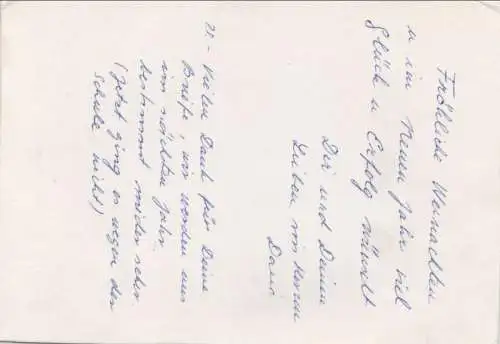 Fröhliche Weinachten
u im Neuen Jahr viel
Glück u Erfolg wünscht
Dir und Deinen
Lieben von Herzen
Dani
PS – Vielen Dank für Deine
Briefe, wir werden uns
im nächsten Jahr
bestimmt wieder sehn
(jetzt ging es wegen der
Schule nicht)